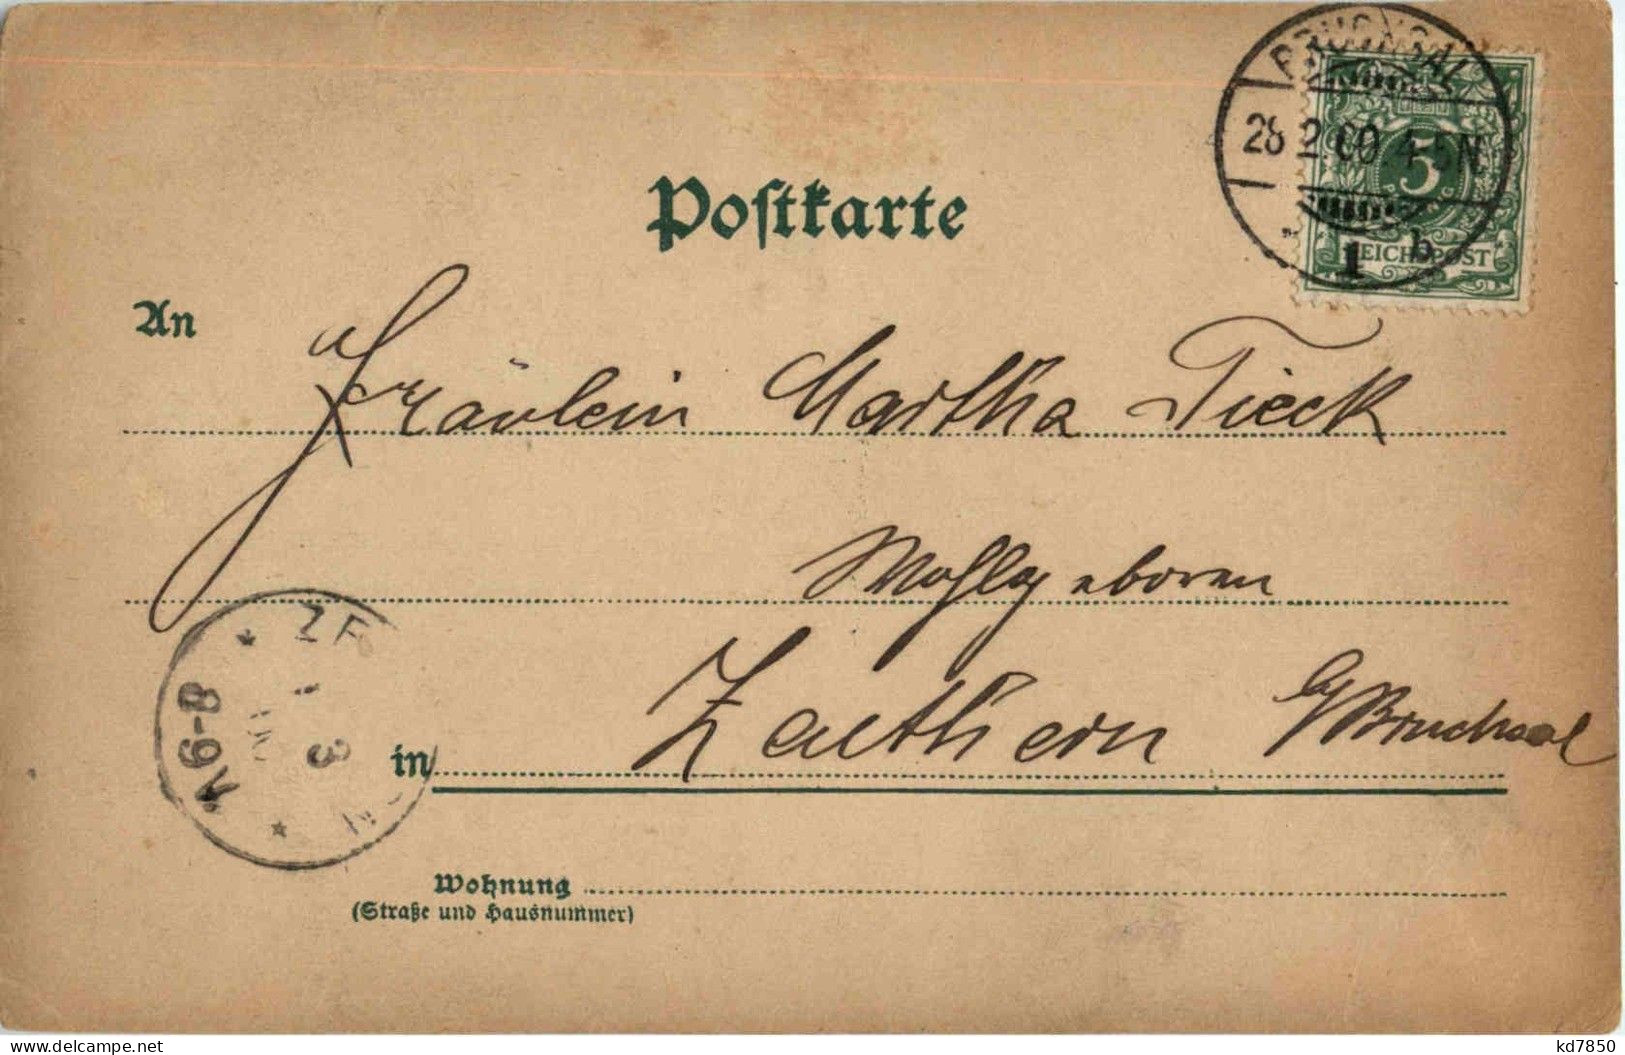 BRUCHSAL
28 2 00 4-5N
1 b
5
REICHSPOST
Postkarte
An
Fräulein Martha Tieck
Wohlgeboren
in Zeuthern b/Bruchsal
ZE
1 3
8-9V
Wohnung
(Straße und Hausnummer)
kd7850